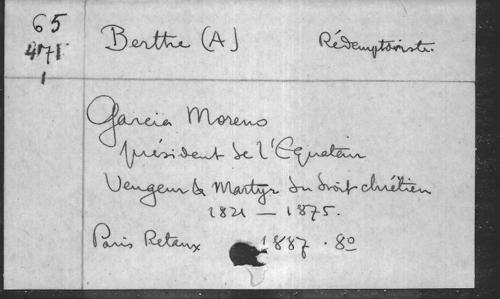 65 Berthe (A) Rédemptoriste.
4171
1
Garcia Moreno
président de l'Equateur
Vengeur & Martyr du droit chrétien
1821 — 1875.
Paris Retaux 1887 . 8o